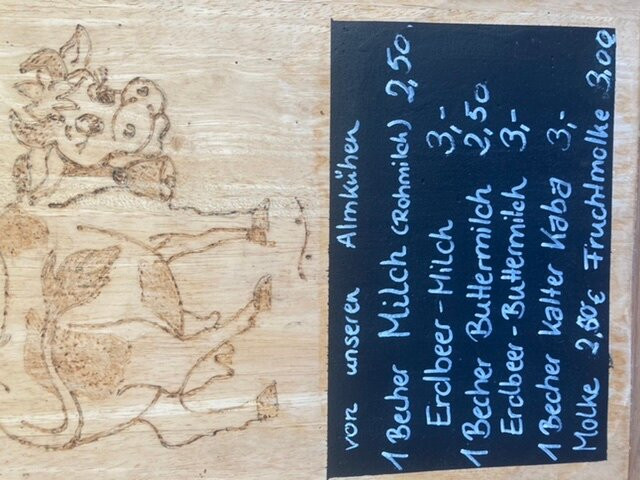 von unseren Almkühen
1 Becher Milch (Rohmilch) 2,50
Erdbeer-Milch 3,-
1 Becher Buttermilch 2,50
Erdbeer-Buttermilch 3,-
1 Becher Kalter Kaba 3,-
Molke 2,50€ Fruchtmolke 3,00